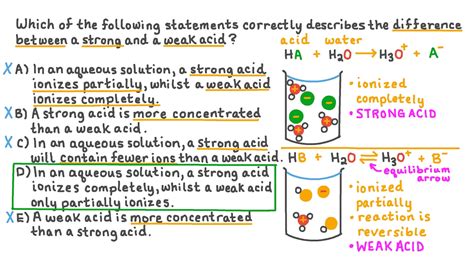 Which of the following statements correctly describes the difference
between a strong and a weak acid?
X A) In an aqueous solution, a strong acid
ionizes partially, whilst a weak acid
ionizes completely.
X B) A strong acid is more concentrated
than a weak acid.
X C) In an aqueous solution, a strong acid
will contain fewer ions than a weak acid.
D) In an aqueous solution, a strong acid
ionizes completely, whilst a weak acid
only partially ionizes.
X E) A weak acid is more concentrated
than a strong acid.
acid water
HA + H₂O → H₃O⁺ + A⁻
• ionized
completely
• STRONG ACID
HB + H₂O ⇌ H₃O⁺ + B⁻
equilibrium
arrow
• ionized
partially
• reaction is
reversible
• WEAK ACID